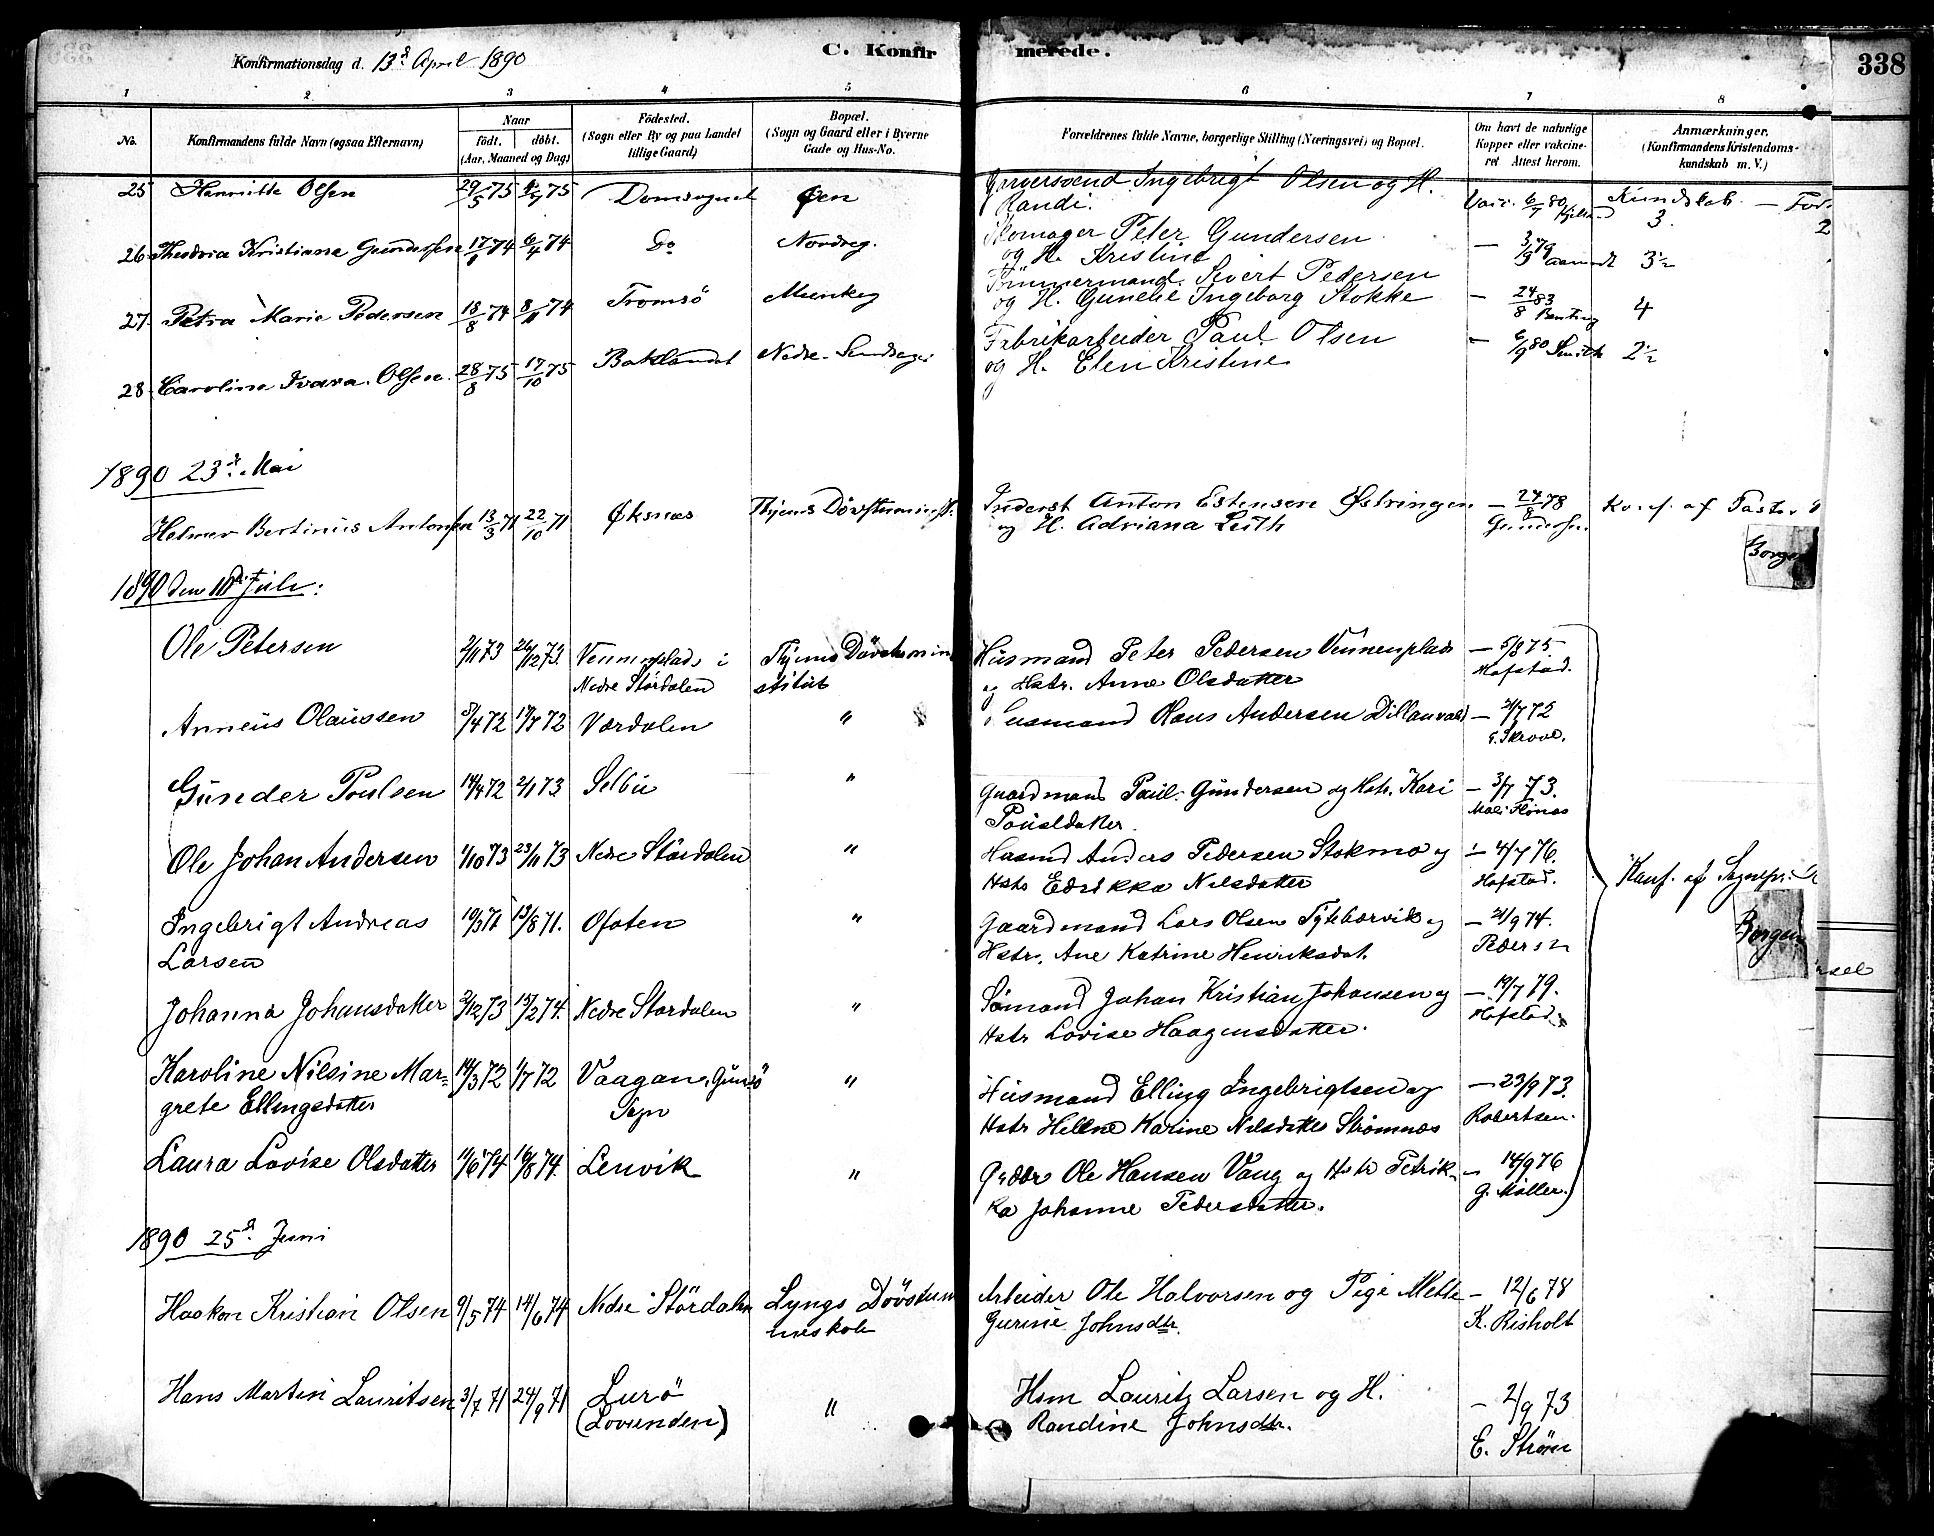 Konfirmationsdag d. 13d April 1890
C. Konfirmerede.
338
1 2 3 4 5 6 7 8
No. Konfirmandens fulde Navn (ogsaa Efternavn) Naar födt. döbt. (Aar, Maaned og Dag) Födested. (Sogn eller By og paa Landet tillige Gaard) Bopæl. (Sogn og Gaard eller i Byerne Gade og Hus-No. Forældrenes fulde Navne, borgerlige Stilling (Næringsvei) og Bopæl. Om havt de naturlige Kopper eller vaccineret Attest herom. Anmærkninger. (Konfirmandens Kristendomskundskab m. V.)
25 Henriette Olsen 29/5 75 4/7 75 Domsognet Øen Garversvend Ingebrigt Olsen og H. Vacc. 6/7 80 Kundskab – For.
Randi. 3. 2
26 Theodora Kristiana Gundersen 17/1 74 6/4 74 Do Nordreg. Skomager Peter Gundersen – 3/9 79 Aamodt 3½
og H. Kristine
27 Petra Marie Pedersen 18/8 74 8/11 74 Tromsö Munkeg Tömmermand Sivert Pedersen – 24/8 83 4
og H. Gunelie Ingeborg Stokke
28 Carolina Ivara Olsen 28/8 75 17/10 75 Baklandet Nedre Fabrikarbeider Paul Olsen – 6/9 80 Smith 2½
og H. Elen Kristine
1890 23d Mai
Helmer Bertinus Antonsen 13/3 71 22/10 71 Øksnæs Inderst Anton Estensen Østringen – 24/8 78 Konf. af Pastor
og H. Adriana Leith Gundersen Borgen
1890 den Juli:
Ole Petersen 2/11 73 26/12 73. Vennenplads i Husmand Peter Pedersen Vennenplads – 5/8 75.
Nedre Stördalen stitut og Hstr. Anne Olsdatter Hofstad.
Anneus Olaussen 8/4 72 17/7 72 Værdalen " Husmand Olaus Andersen – 21/7 72
Gunder Poulsen 14/4 72 2/1 73 Selbu " Gaardmand Paul Gundersen og Hstr. Kari – 3/7 73.
Poulsdatter.
Ole Johan Andersen 1/10 73 23/11 73 Nedre Stördalen " Husmd Anders Pedersen Stokmo og – 4/7 76.
Hstr Edrikka Nilsdatter Hofstad. Konf. af Sognepr.
Ingebrigt Andreas 10/3 71 13/8 71. Ofoten " Gaardmand Lars Olsen Tyttebærvik og – 21/9 74.
Larsen Hstr. Ane Katrine Henriksdat. Pedersen Borgen
Johanna Johansdatter 2/12 73 15/2 74. Nedre Stordalen " Sömand Johan Kristian Johansen og – 19/7 79.
Hstr Lovise Haagensdatter. Hofstad.
Karoline Nilsine Mar= 14/3 72 1/7 72 Vaagan, Gimsö " Husmand Elling Ingebrigtsen og – 23/9 73.
grete Ellingsdatter Sogn Hstr Hellene Karine Nilsdatter Strømnæs Robertsen.
Laura Lovise Olsdatter 74 16/8 74. Lenvik " Gaardbr Ole Hansen Vang og Hstr Petrik – 14/9 76
ka Johanne Pedersdatter. G. Möller.
1890 25d Juni
Haakon Kristian Olsen 9/5 74 14/6 74 Nedre Stördalen Lyngs Dövstum Arbeider Ole Halvorsen og Pige Mette – 12/6 78
meskole Gurine Johnsdtr. K. Risholt
Hans Martin Lauritsen 3/7 71 24/9 71 Lurö " Hsm Lauritz Larsen og H. – 2/9 73
(Lovunden) Randine Johnsdtr. E. Ström